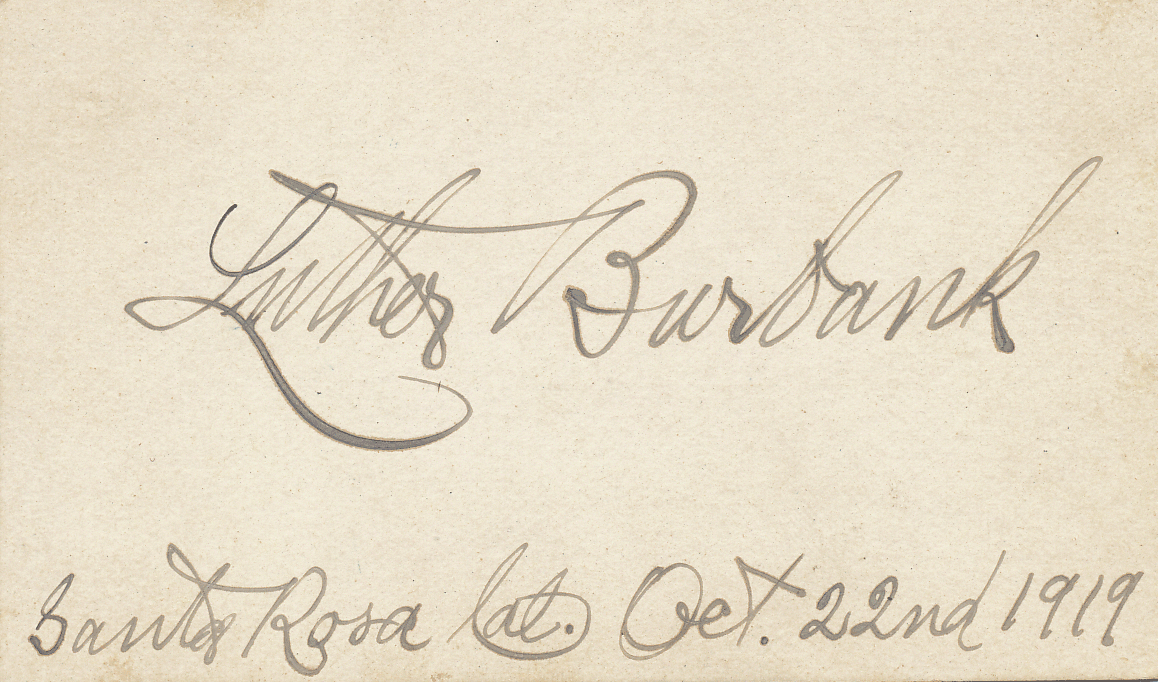 Luther Burbank
Santa Rosa Cal. Oct. 22nd 1919